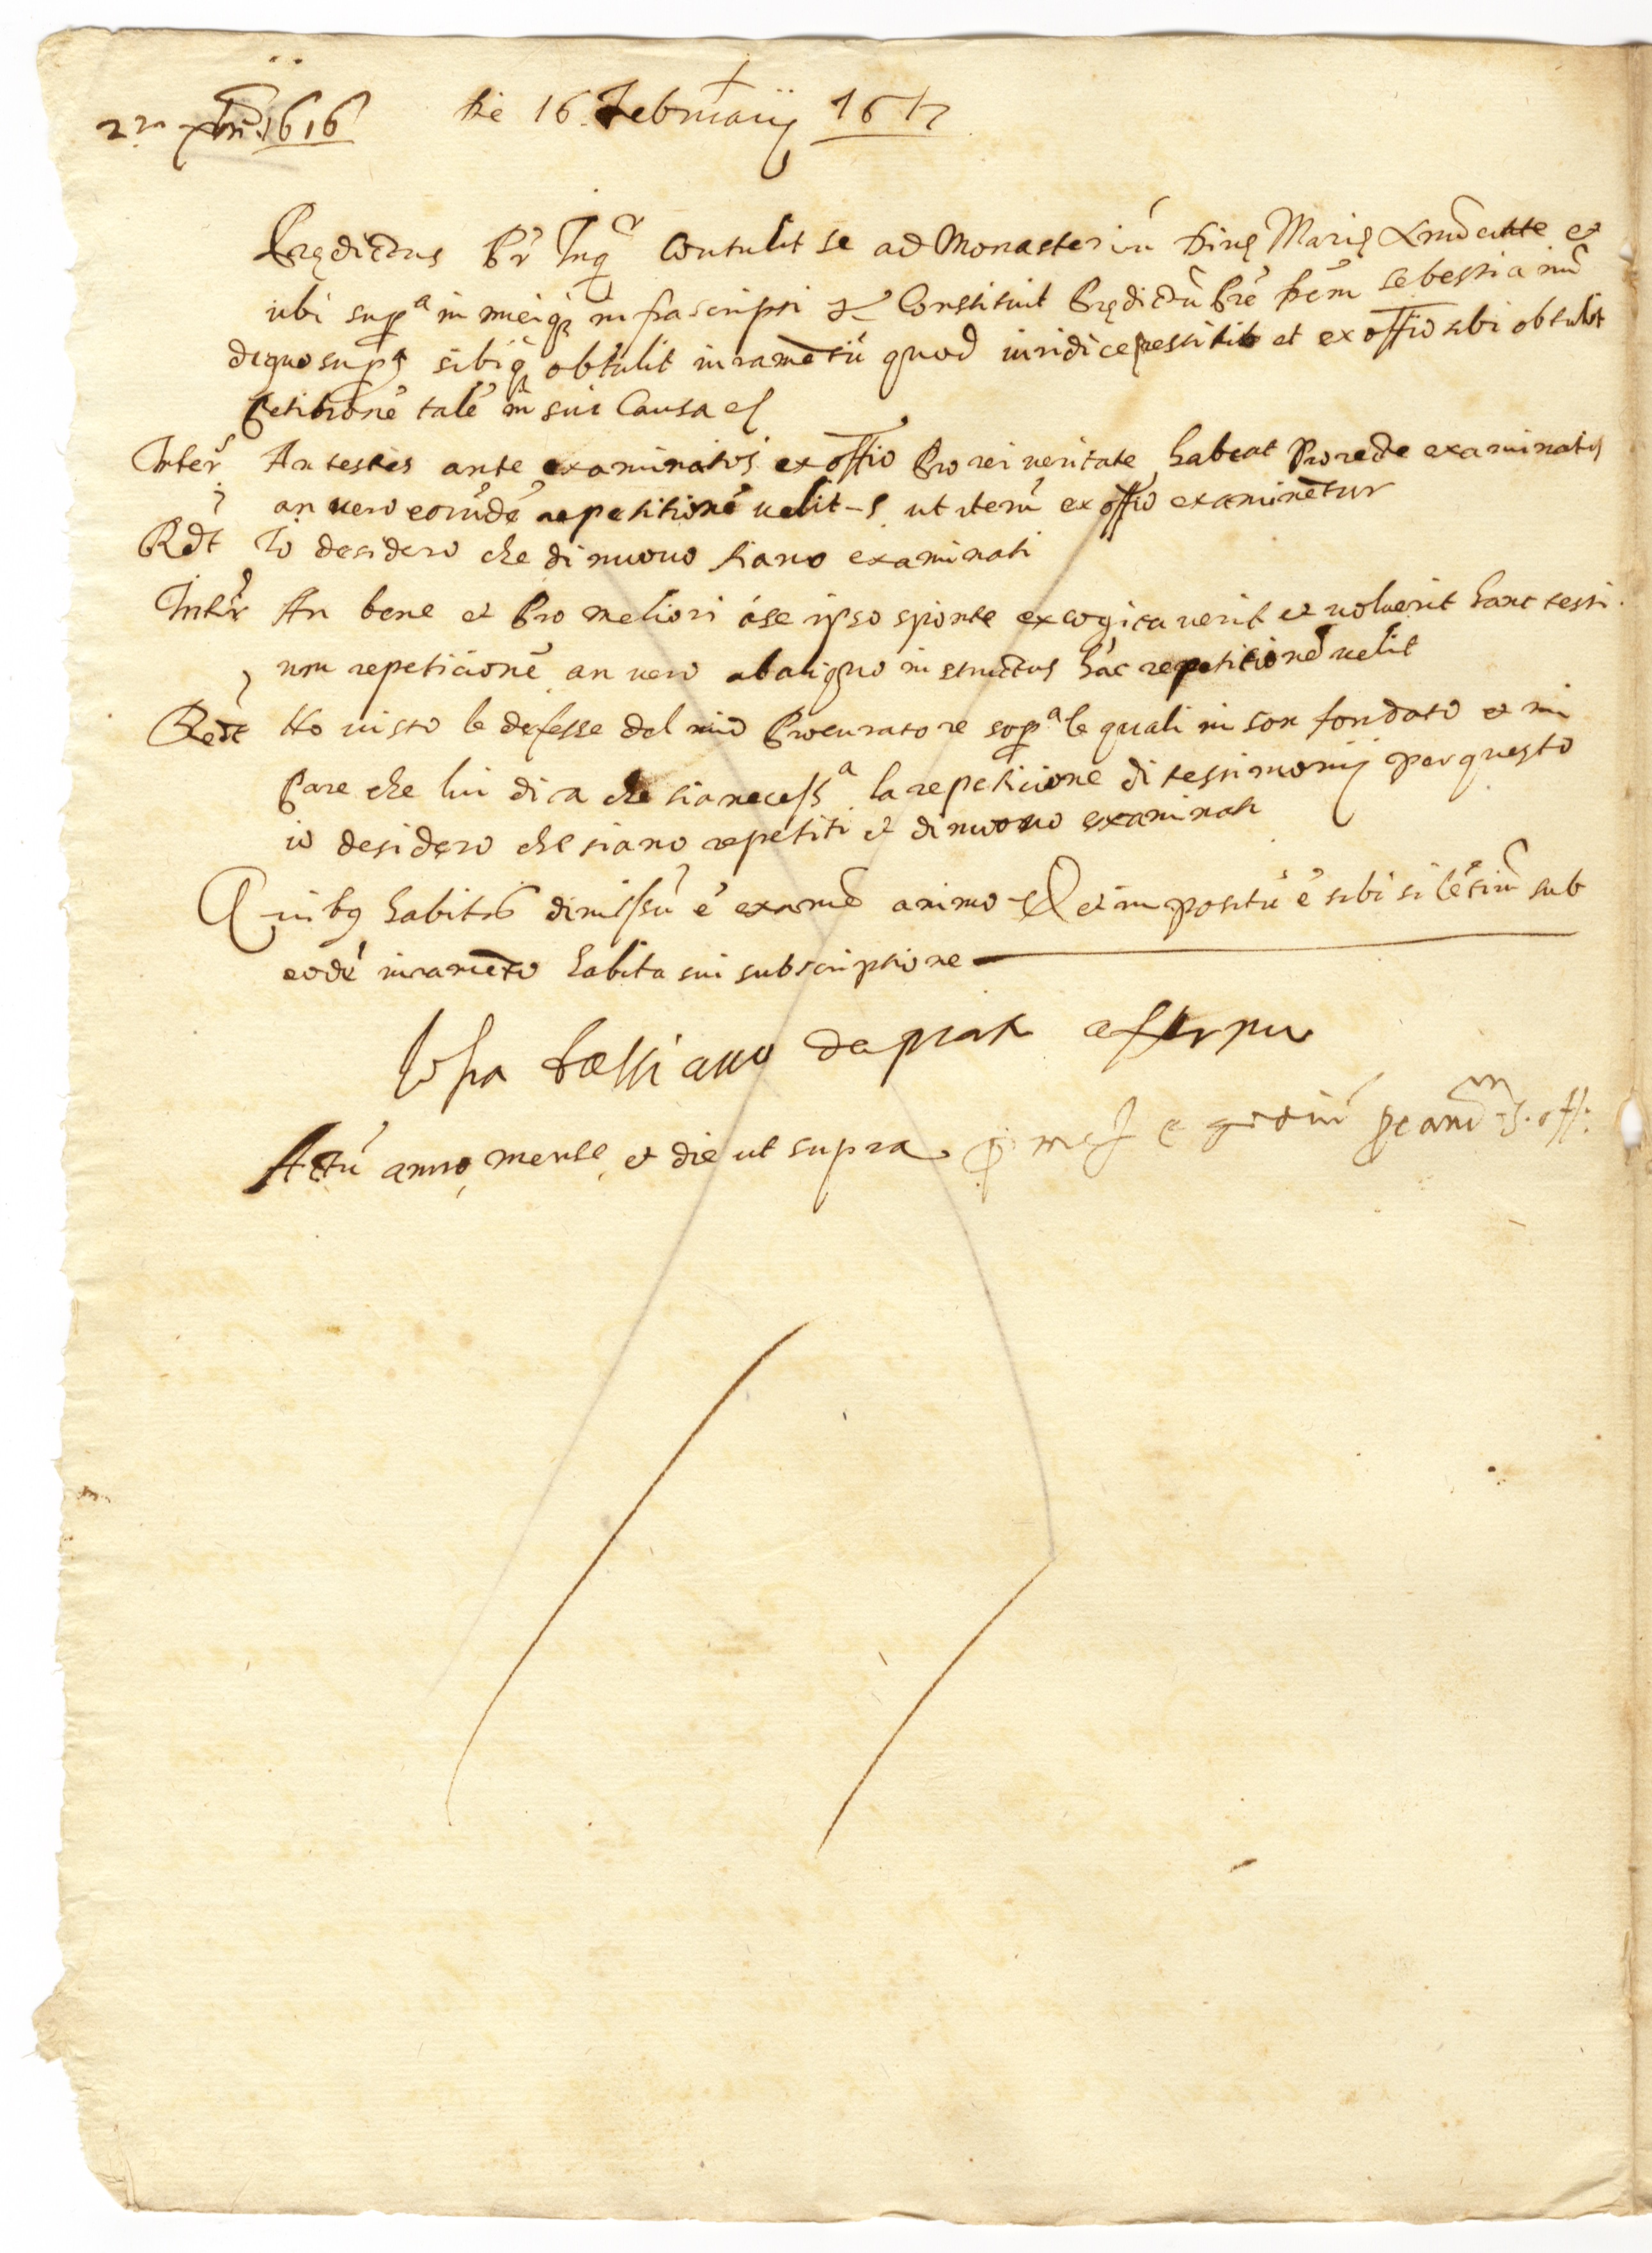 1616 Die 16. Februarij 1617
Prędictus Pr Inqr Contulit se ad Monasteriũ Diuę Marię et
ubi supa in meiq infrascripti et Constituit Prędictũ Prẽ sebestianũ
de quo supa sibiq obtulit iuramẽtũ quod iuridice prestitit et ex offio sibi obtulit
Petitionẽ talẽ in sui Causa
Interr An testes ante examinatos ex offio Pro rei ueritate habeat Pro recte examinatis
an uero eorũdẽ repetitionẽ uelit ut iterũ ex offio examinẽtur
Rdt Io desidero che di nuouo siano examinati
Intr An bene et Pro meliori á se ipso sponte excogitauerit et uoluerit hanc testi
um repeticionẽ an uero ab aliquo instructus hãc repetitionẽ uelit
Redt Ho uisto le defesse del mio Procuratore sopa le quali mi son fondato et mi
Pare che lui dica che sia necessa la repeticione di testimonij per questo
io desidero che siano repetiti et di nuouo examinati
Quibq habitis dimissũ ẽ examẽ animo et impositũ ẽ sibi silẽtiũ sub
eodẽ iuramẽto habita sui subscriptione
Io fra bastiano da prat
Actũ anno, mense, et die ut supra